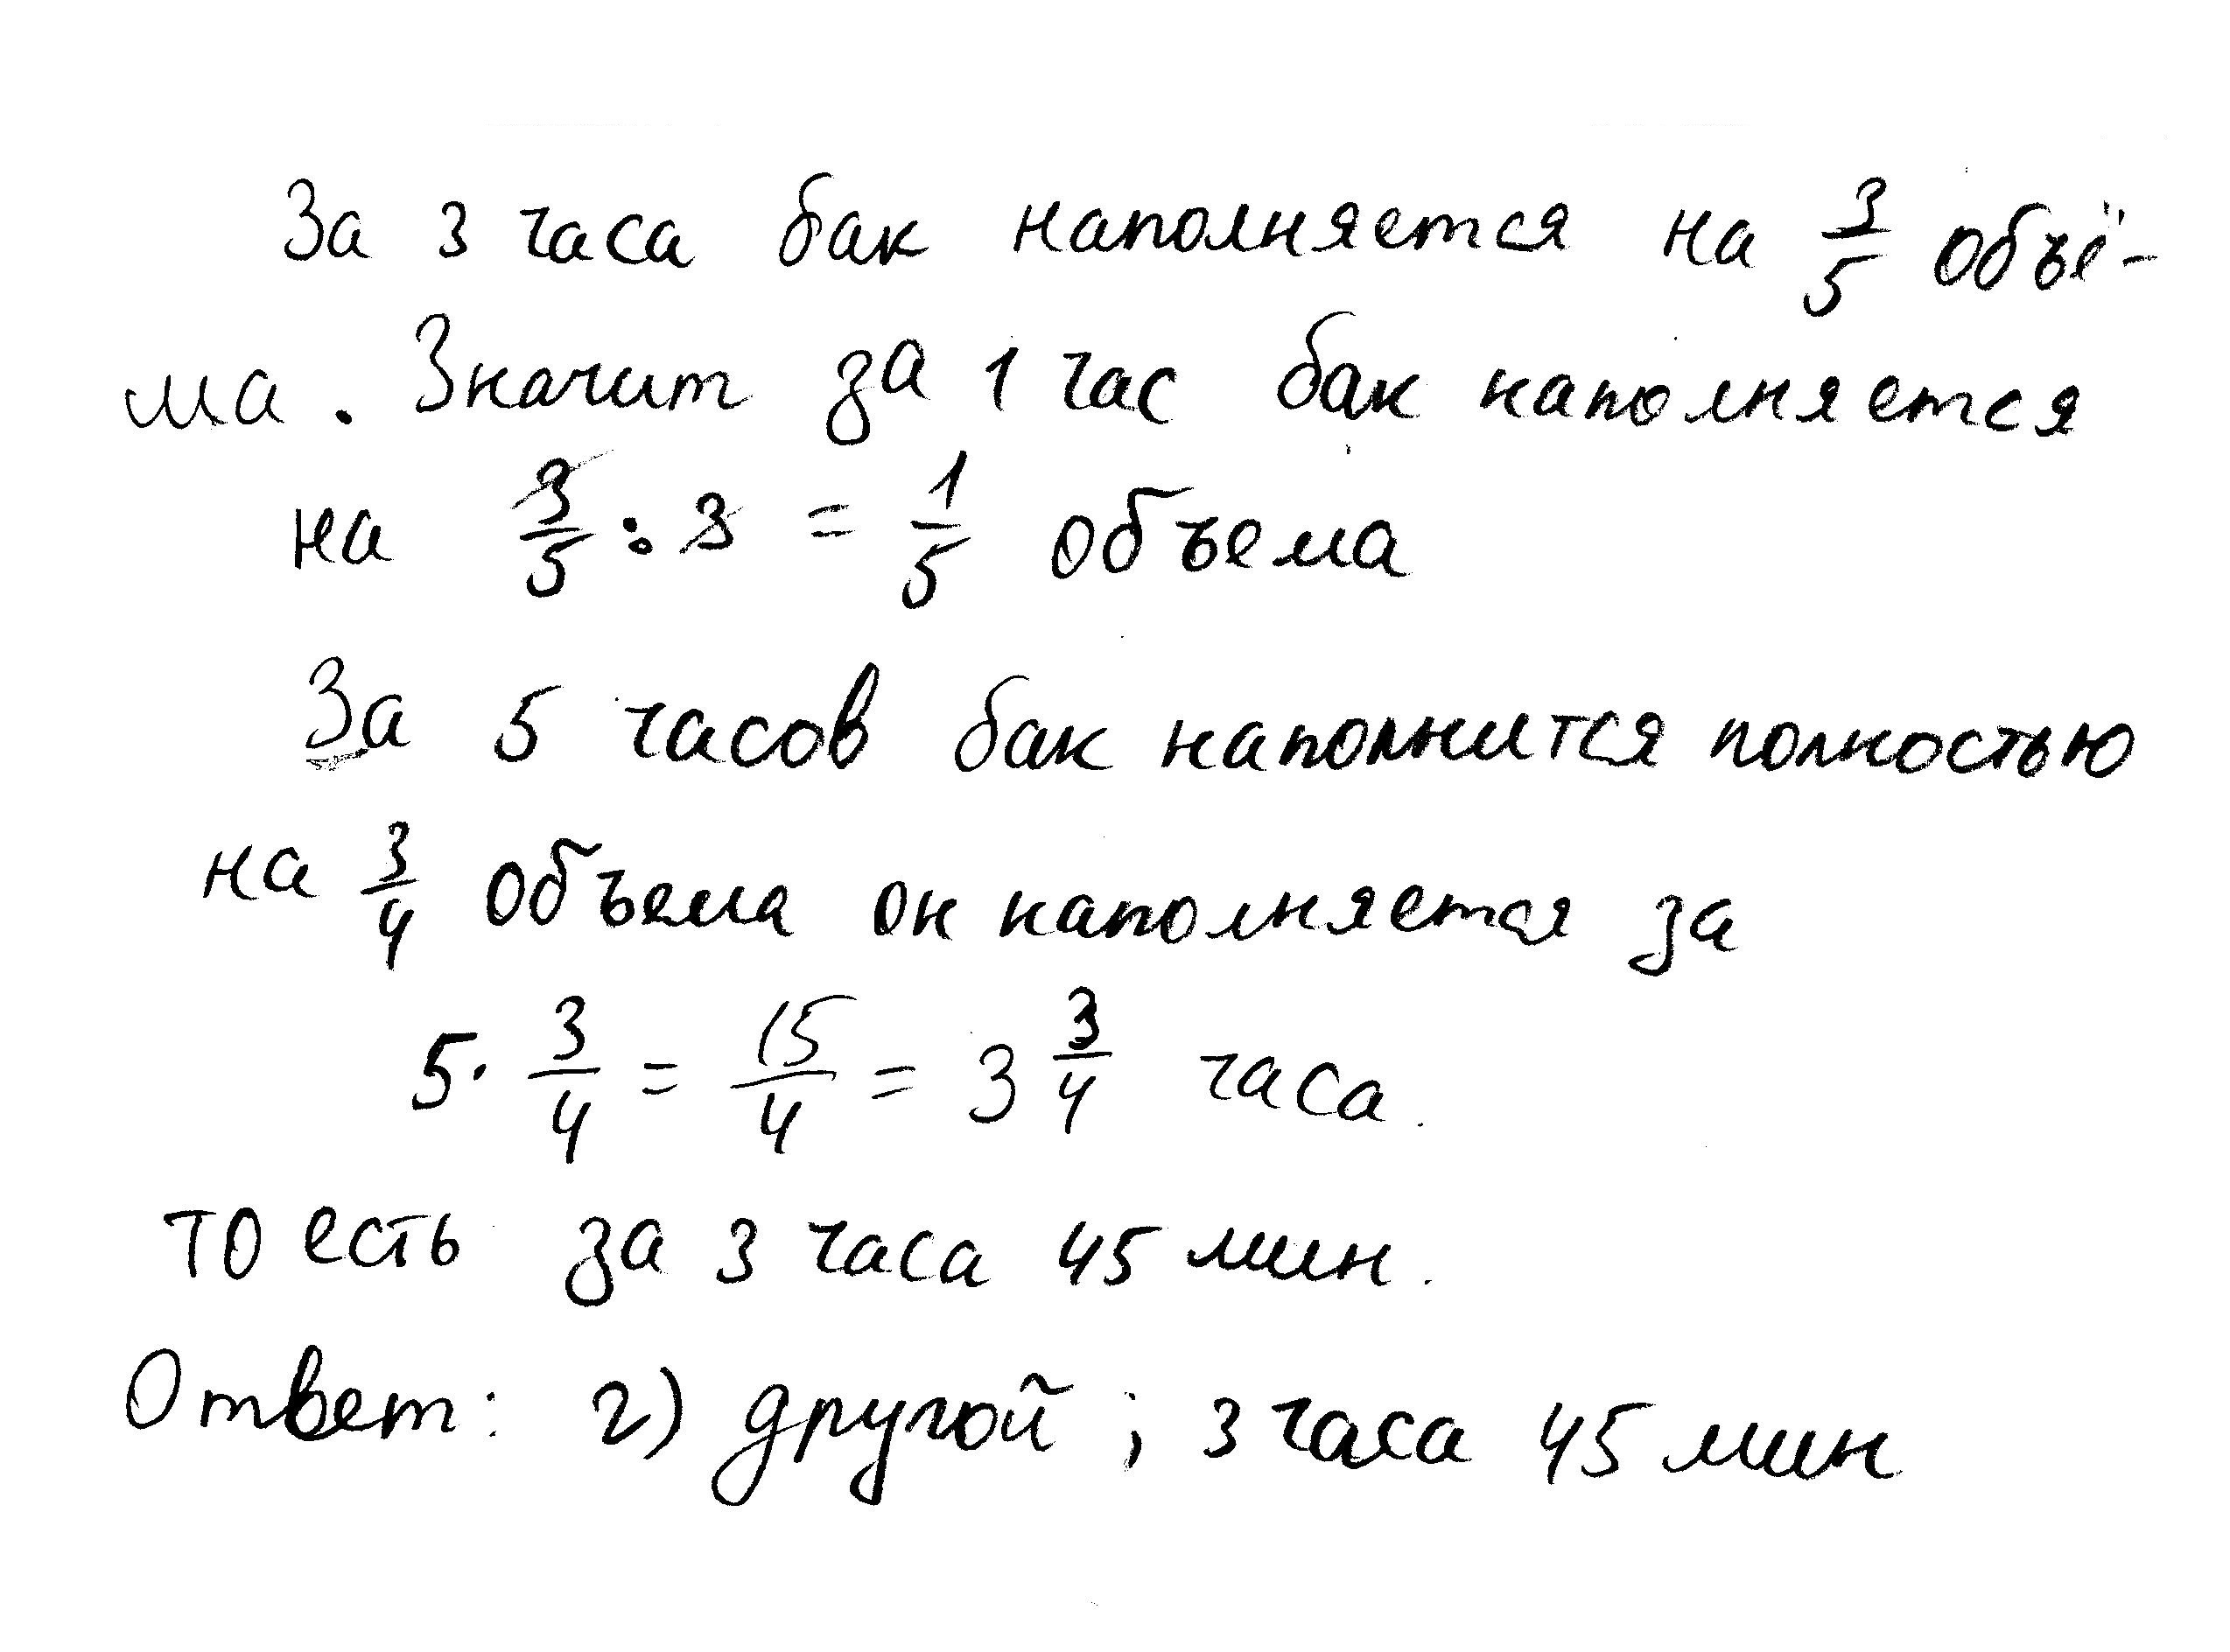 За 3 часа бак наполняется на 3/5 объё-
ма. Значит за 1 час бак наполняется
на 3/5 : 3 = 1/5 объема
За 5 часов бак наполнится полностью
на 3/4 объема он наполняется за
5 · 3/4 = 15/4 = 3 3/4 часа.
то есть за 3 часа 45 мин.
Ответ: г) другой ; 3 часа 45 мин